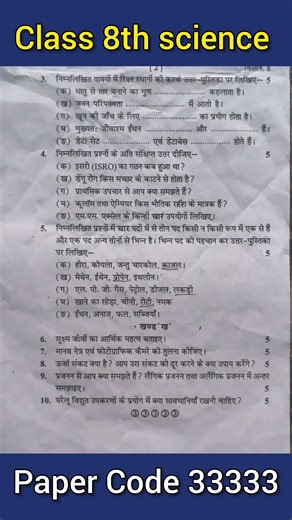 Class 8th science
[2]
विज्ञान, 8
3. निम्नलिखित वाक्यों में रिक्त स्थानों को करके उत्तर-पुस्तिका पर लिखिए– 5
(क) धातु से तार बनाने का गुण .................. कहलाता है।
(ख) जनन परिपक्वता .................. में आती है।
(ग) खून की जाँच के लिए .................. का प्रयोग होता है।
(घ) मुख्यतः जीवाश्म ईंधन .................. और .................. हैं।
(ङ) डैटा सेट .................. एवं डेटाबेस .................. होते हैं।
4. निम्नलिखित प्रश्नों के अति संक्षिप्त उत्तर दीजिए– 5
(क) इसरो (ISRO) का गठन कब हुआ था?
(ख) डेंगू रोग किस मच्छर के काटने से होता है?
(ग) प्राथमिक उपचार से आप क्या समझते हैं?
(घ) कूलॉम तथा ऐम्पियर किस भौतिक राशि के मात्रक हैं?
(ङ) एम.एस. एक्सेल के किन्हीं चार उपयोगों लिखिए।
5. निम्नलिखित प्रश्नों में चार पदों में से तीन पद किसी न किसी रूप में एक से हैं
और एक पद अन्य तीनों से भिन्न है। भिन्न पद को पहचान कर उत्तर-पुस्तिका
पर लिखिए– 5
(क) हीरा, कोयला, जन्तु चारकोल, काजल।
(ख) मेथेन, ईथेन, प्रोपेन, इथलीन।
(ग) एल. पी. जी. गैस, पेट्रोल, डीजल, लकड़ी
(घ) खाने का सोडा, चीनी, रोटी, नमक
(ङ) ईंधन, अनाज, फल, सब्जियाँ।
खण्ड 'ख'
6. सूक्ष्म जीवों का आर्थिक महत्व बताइए। 5
7. मानव नेत्र एवं फोटोग्राफिक कैमरे की तुलना कीजिए। 5
8. ऊर्जा संकट क्या है? आप उस संकट को दूर करने के क्या उपाय करेंगे? 5
9. प्रजनन से आप क्या समझते हैं? लैंगिक प्रजनन तथा अलैंगिक प्रजनन में अन्तर
समझाइए। 5
10. घरेलू विद्युत उपकरणों के प्रयोग में क्या सावधानियाँ रखनी चाहिए? 5
③③③③③
Paper Code 33333